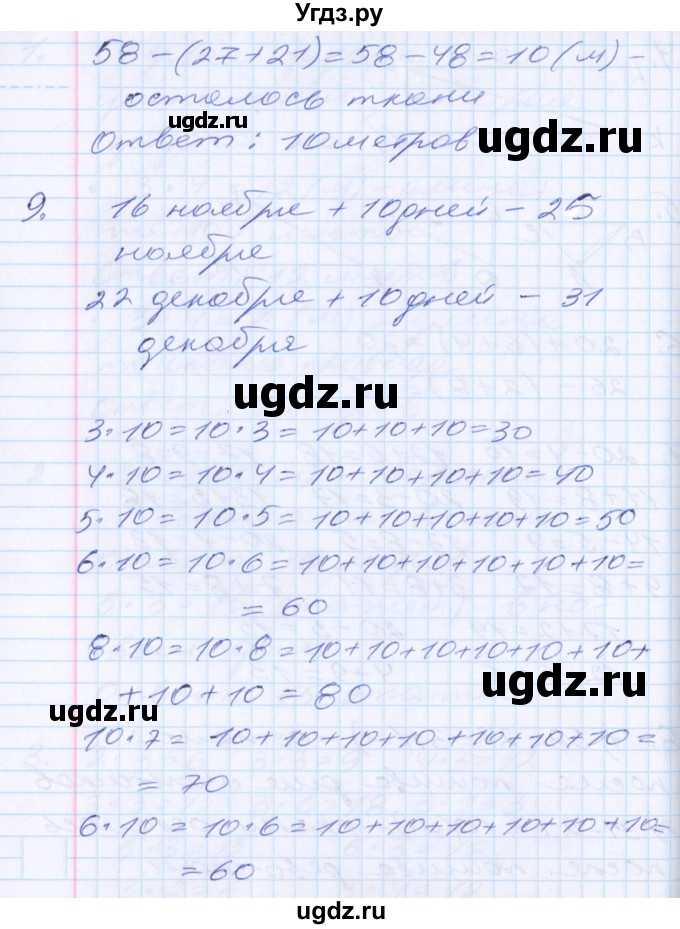 Угдз.ру
58-(27+21)=58-48=10(м)-
осталось ткани
Ответ: 10 метров
ugdz.ru
ugdz.ru
9. 16 ноября + 10 дней - 25
ноября
22 декабря + 10 дней - 31
декабря
ugdz.ru
3·10=10·3=10+10+10=30
4·10=10·4=10+10+10+10=40
5·10=10·5=10+10+10+10+10=50
6·10=10·6=10+10+10+10+10+10=
=60
8·10=10·8=10+10+10+10+10+10+
+10+10=80
ugdz.ru
ugdz.ru
10·7=10+10+10+10+10+10+10=
=70
6·10=10·6=10+10+10+10+10+10=
=60
ugdz.ru
ugdz.ru